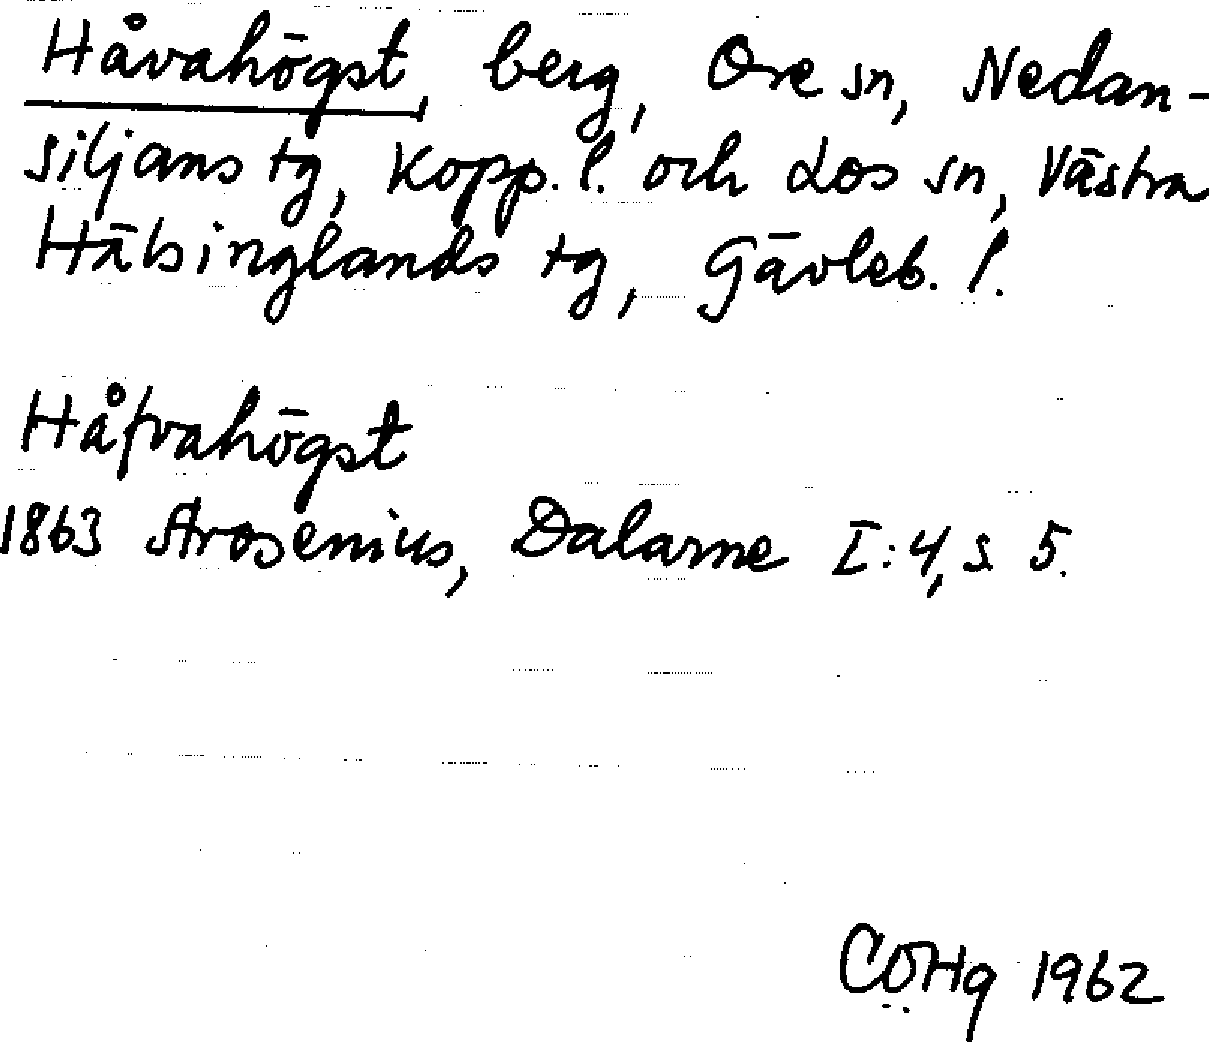 Håvahögst, berg, Ore sn, Nedan-
siljans tg, Kopp. l. och Los sn, Västra
Hälsinglands tg, Gävleb. l.
Håfvahögst
1863 Arosenius, Dalarne I:4, s. 5.
COHq 1962